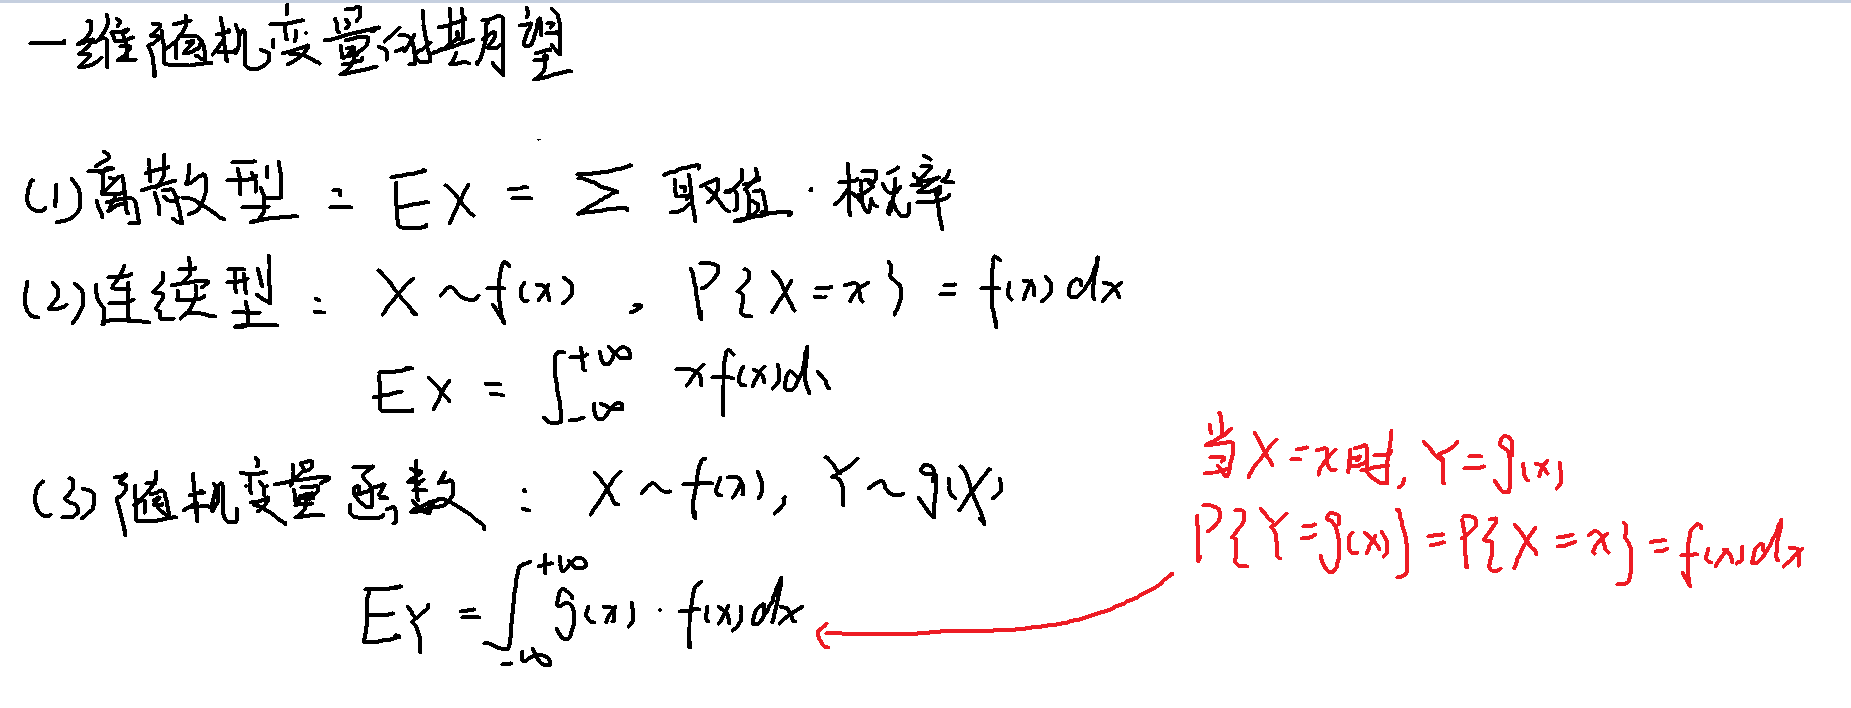 一维随机变量的期望
(1)离散型: EX = Σ 取值·概率
(2)连续型: X~f(x), P{X=x} = f(x)dx
EX = ∫_{-∞}^{+∞} xf(x)dx
(3)随机变量函数: X~f(x), Y~g(X)
EY = ∫_{-∞}^{+∞} g(x)·f(x)dx
当X=x时, Y=g(x)
P{Y=g(x)}=P{X=x}=f(x)dx